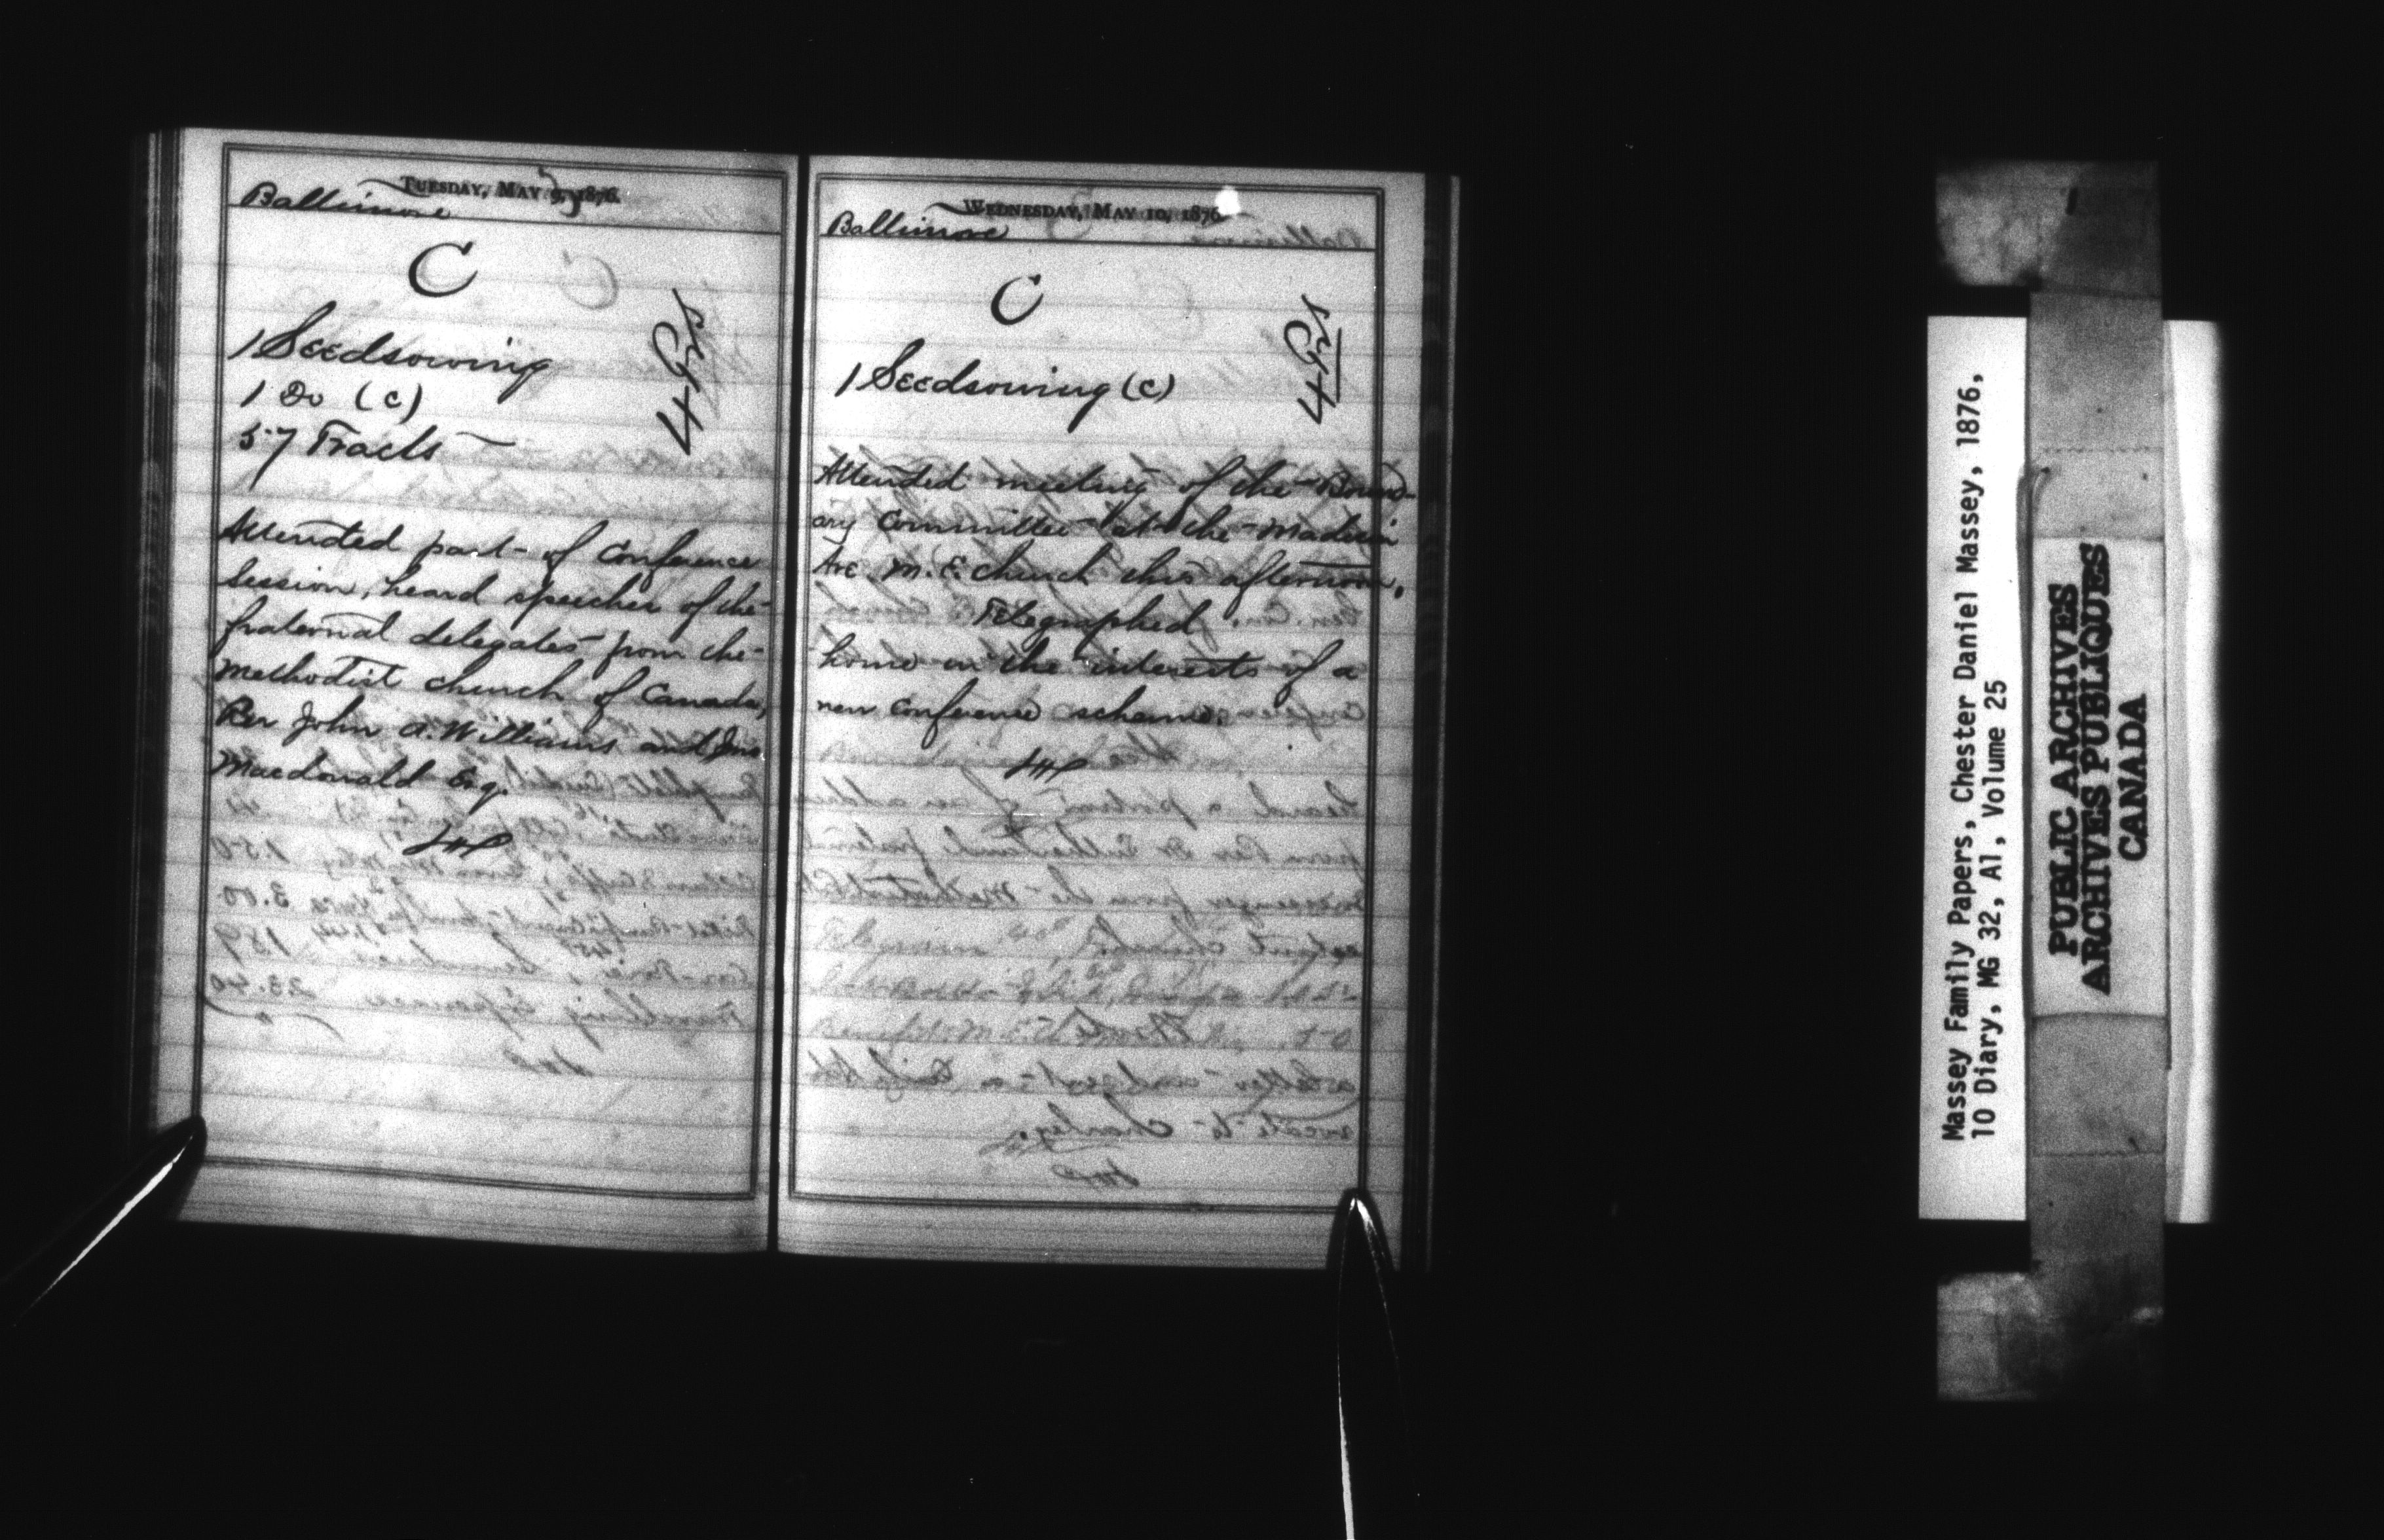 TUESDAY, MAY 9, 1876.
Baltimore
C
4 Prs
1 Seedsowing
1 Do (c)
57 Tracts
Attended part of Conference
Session, heard speeches of the
fraternal delegates from the
Methodist church of Canada,
Rev John A. Williams and Jno
Macdonald Esq.
WEDNESDAY, MAY 10, 1876.
Baltimore
C
4 Prs
1 Seedsowing (c)
Attended meeting of the Bound-
ary Committee at the Madison
Ave M. E. church this afternoon,
Telegraphed
home in the interests of a
new Conference scheme.
Massey Family Papers, Chester Daniel Massey, 1876,
10 Diary, MG 32, A1, Volume 25
PUBLIC ARCHIVES
ARCHIVES PUBLIQUES
CANADA